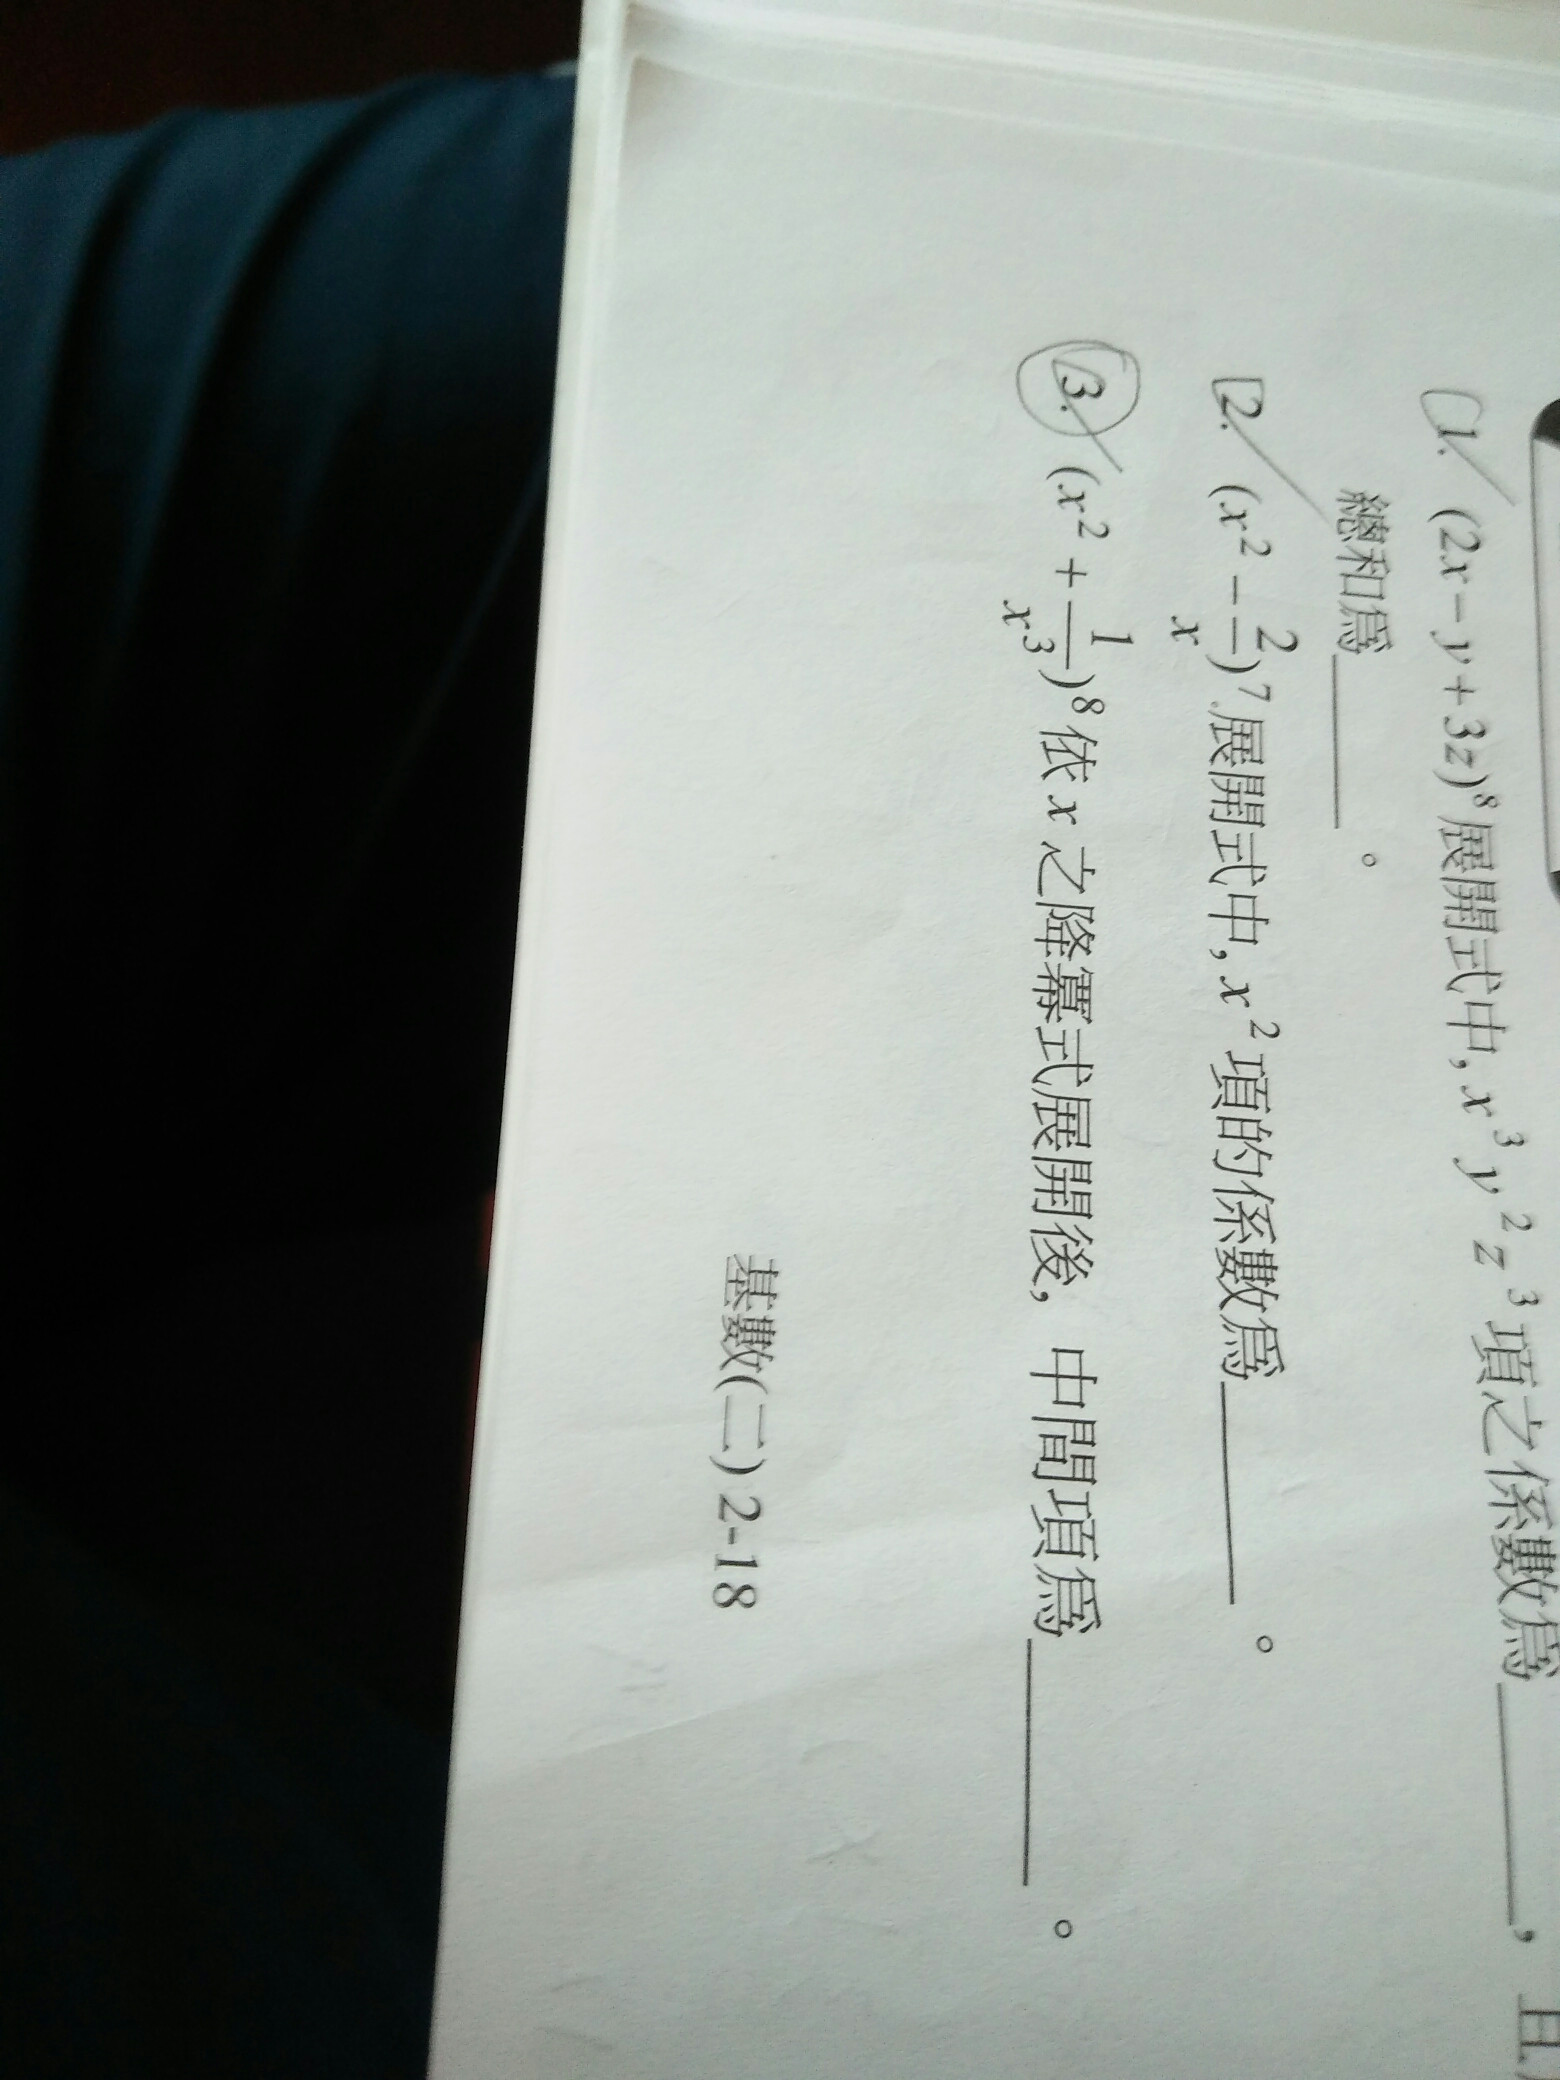 1. (2x-y+3z)⁸展開式中, x³y²z³項之係數為______, 且
總和為______。
2. (x²-2/x)⁷展開式中, x²項的係數為______。
3. (x²+1/x³)⁸依x之降冪式展開後, 中間項為______。
基數(二) 2-18